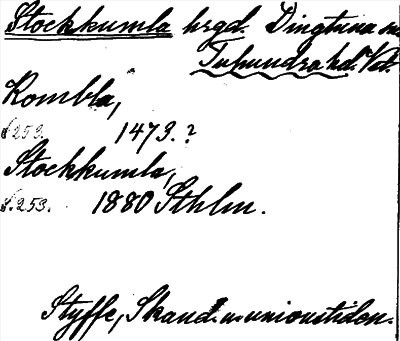 Stockkumla hrgd. Dingtuna sn
Tuhundra hd. Vstl.
Kombla,
s. 253. 1473.?
Stockkumla,
s. 253. 1880 Sthlm.
Styffe, Skand. u. unionstiden.